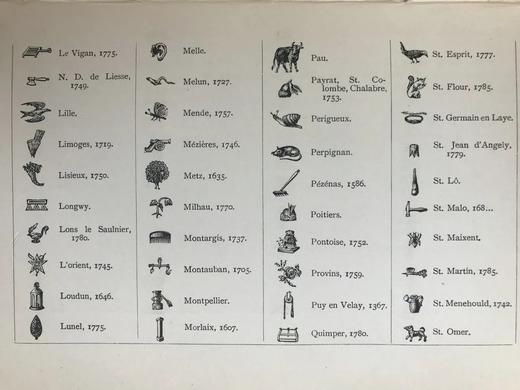 Le Vigan, 1775.
N. D. de Liesse,
1749.
Lille.
Limoges, 1719.
Lisieux, 1750.
Longwy.
Lons le Saulnier,
1780.
L'orient, 1745.
Loudun, 1646.
Lunel, 1775.
Melle.
Melun, 1727.
Mende, 1757.
Mézières, 1746.
Metz, 1635.
Milhau, 1770.
Montargis, 1737.
Montauban, 1705.
Montpellier.
Morlaix, 1607.
Pau.
Payrat, St. Co-
lombe, Chalabre,
1753.
Perigueux.
Perpignan.
Pézénas, 1586.
Poitiers.
Pontoise, 1752.
Provins, 1759.
Puy en Velay, 1367.
Quimper, 1780.
St. Esprit, 1777.
St. Flour, 1785.
St. Germain en Laye.
St. Jean d'Angely,
1779.
St. Lô.
St. Malo, 168...
St. Maixent.
St. Martin, 1785.
St. Menehould, 1742.
St. Omer.